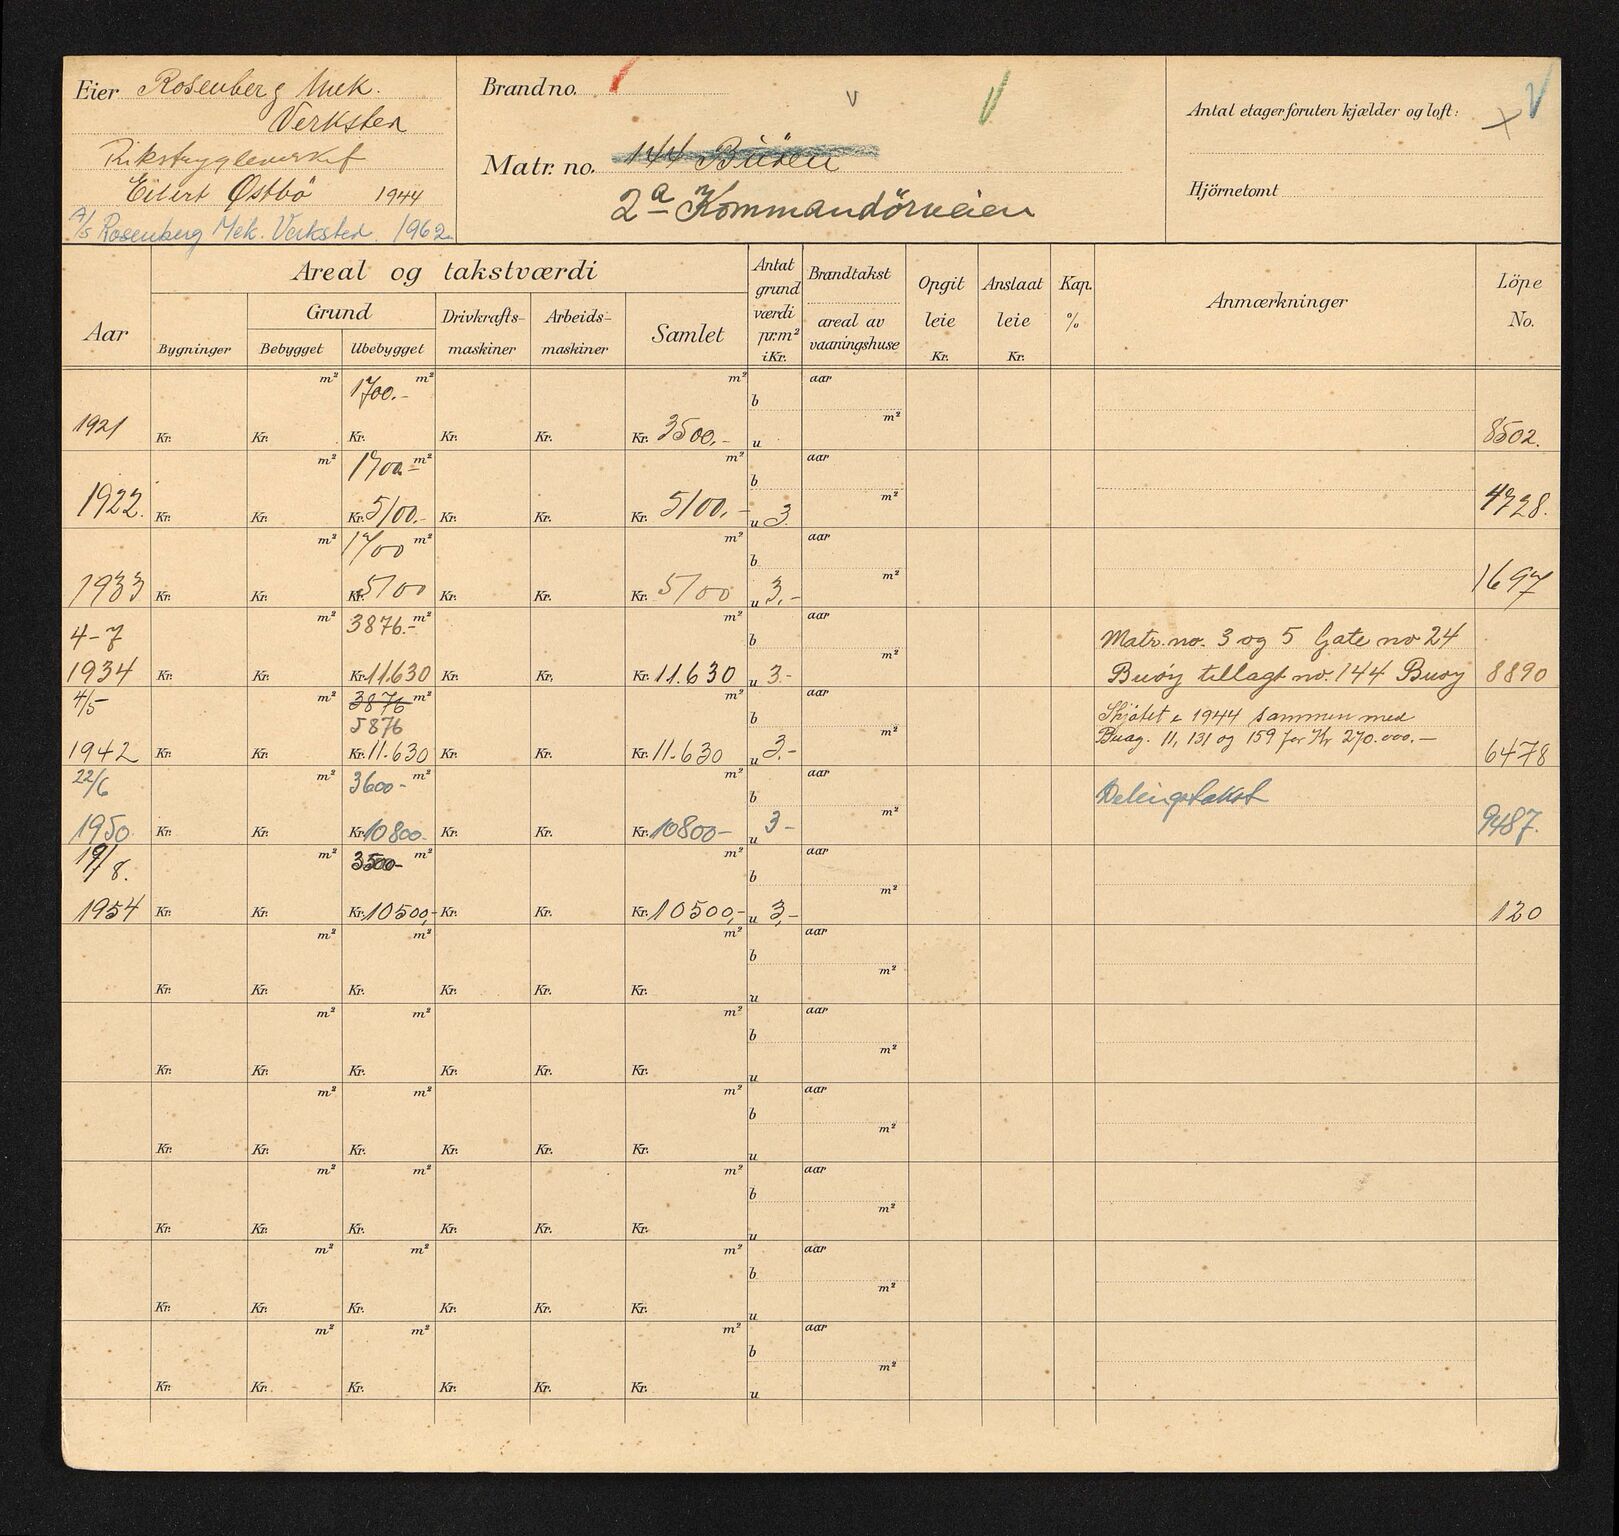 Eier Rosenberg Mek.
Verksted
Rikstrygdeverket
Eilert Østbö 1944
A/S Rosenberg Mek. Verksted. 1962
Brandno.
Matr. no. 144 Buöen
2a Kommandörveien
Antal etager foruten kjælder og loft:
Hjörnetomt
Aar
Areal og takstværdi
Bygninger
Grund
Bebygget Ubebygget
Drivkrafts-
maskiner
Arbeids-
maskiner
Samlet
Antat
grund
værdi
pr.m²
i Kr.
Brandtakst
areal av
vaaningshuse
Opgit
leie
Kr.
Anslaat
leie
Kr.
Kap.
%
Anmærkninger
Löpe
No.
m² 1700.- m² m² b aar
1921 Kr. Kr. Kr. Kr. Kr. Kr. 3500,- u m² 8502.
m² 1700.- m² m² b aar
1922. Kr. Kr. Kr. 5100.- Kr. Kr. Kr. 5100,- u 3. m² 4728.
m² 1700 m² m² b aar
1933 Kr. Kr. Kr. 5100 Kr. Kr. Kr. 5100 u 3.- m² 1697
4-7 m² 3876.- m² m² b aar m² Matr. no. 3 og 5 Gate no 24
1934 Kr. Kr. Kr. 11.630 Kr. Kr. Kr. 11.630 u 3.- Buöy tillagt no. 144 Buöy 8890
4/5 m² 3876 m² m² b aar Skjötet i 1944 sammen med
5876 m² Buög. 11, 131 og 159 for Kr 270.000.-
1942 Kr. Kr. Kr. 11.630 Kr. Kr. Kr. 11.630 u 3.- 6478
22/6 m² 3600- m² m² b aar Delingstakst
1950. Kr. Kr. Kr. 10800- Kr. Kr. Kr. 10800- u 3- m² 9487.
19/8. m² 3500- m² m² b aar
1954 Kr. Kr. Kr. 10500,- Kr. Kr. Kr. 10500,- u 3,- m² 120
m² m² m² b aar
Kr. Kr. Kr. Kr. Kr. Kr. u m²
m² m² m² b aar
Kr. Kr. Kr. Kr. Kr. Kr. u m²
m² m² m² b aar
Kr. Kr. Kr. Kr. Kr. Kr. u m²
m² m² m² b aar
Kr. Kr. Kr. Kr. Kr. Kr. u m²
m² m² m² b aar
Kr. Kr. Kr. Kr. Kr. Kr. u m²
m² m² m² b aar
Kr. Kr. Kr. Kr. Kr. Kr. u m²